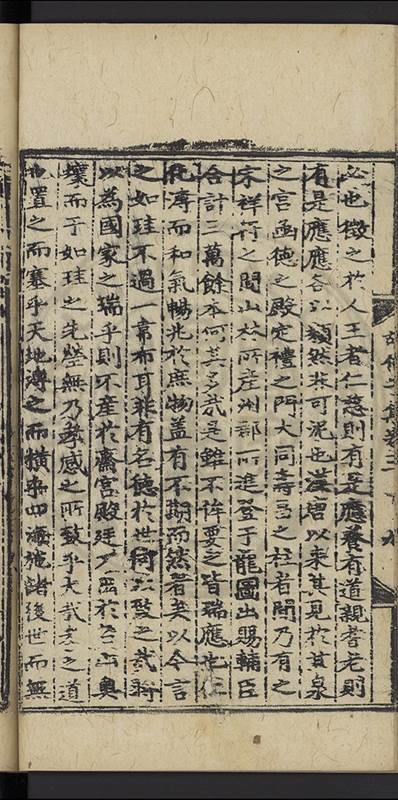 必也徵之於人王者仁慈則有是應養有道親耆老則
有是應應各以類然非可泥也漢唐以來其見於甘泉
之宮函德之殿定禮之門大同壽昌之柱者間乃有之
宋祥符之間山於所産州郡所進登于龍圖出賜輔臣
合計三萬餘本何其多哉是雖不侔要之皆瑞應也仁
化溥而和氣暢兆於庶物盖有不期而然者矣以今言
之如珪不過一韋布耳非有名德於世何以致之哉將
以為國家之瑞乎則不產於齋宮殿廷而出於山奥
壤而于如珪之先塋無乃孝感之所致乎大哉孝之道
也置之而塞乎天地溥之而橫乎四海施諸後世而無
文集卷三
九